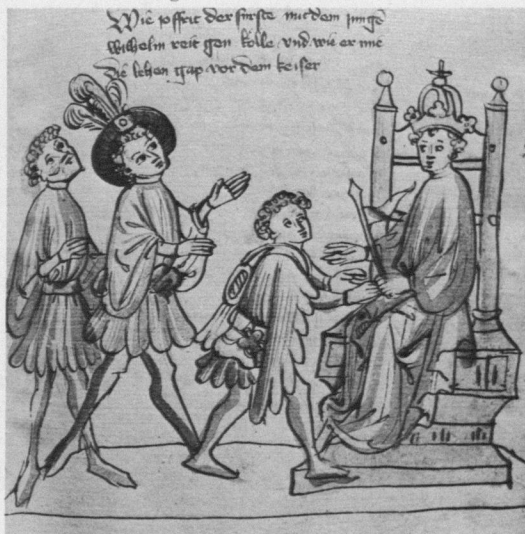 Wie joffrit der furste mit dem junge
wilhelm reit gen kolle und wie er ime
die lehen gap vor dem keiser